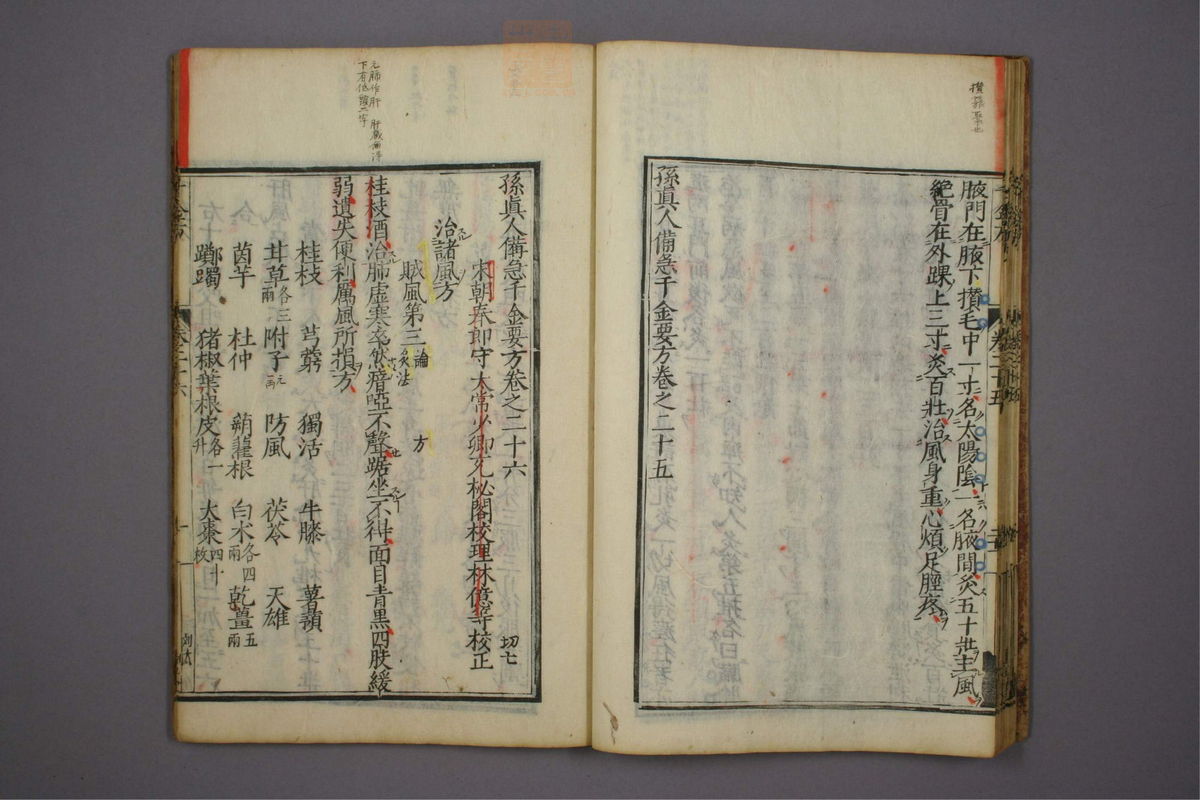 攅蔟聚也
腋門在腋下攅毛中一寸名太陽陰一名腋間灸五十壯主風
絶骨在外踝上三寸灸百壯治風身重心煩足脛疼
孫眞人備急千金要方卷之二十五
千金方
卷二十五
孫眞人備急千金要方卷之二十六 切七
宋朝奉郎守太常少卿充秘閣校理林億等校正
治諸風方
賊風第三 論 灸法 方
元肺作肝 肝藏
下有低頭二字
桂枝酒治肺虛寒卒然瘖啞不聲踞坐不得面目青黑四肢緩
弱遺失便利厲風所損方
桂枝 芎藭 獨活 牛膝 薯蕷
甘草各三兩 附子元二兩 防風 茯苓 天雄
茵芋 杜仲 蒴藋根 白朮各四兩 乾薑五兩
躑躅 猪椒葉根皮各一升 大棗四十枚
千金方
卷二十六